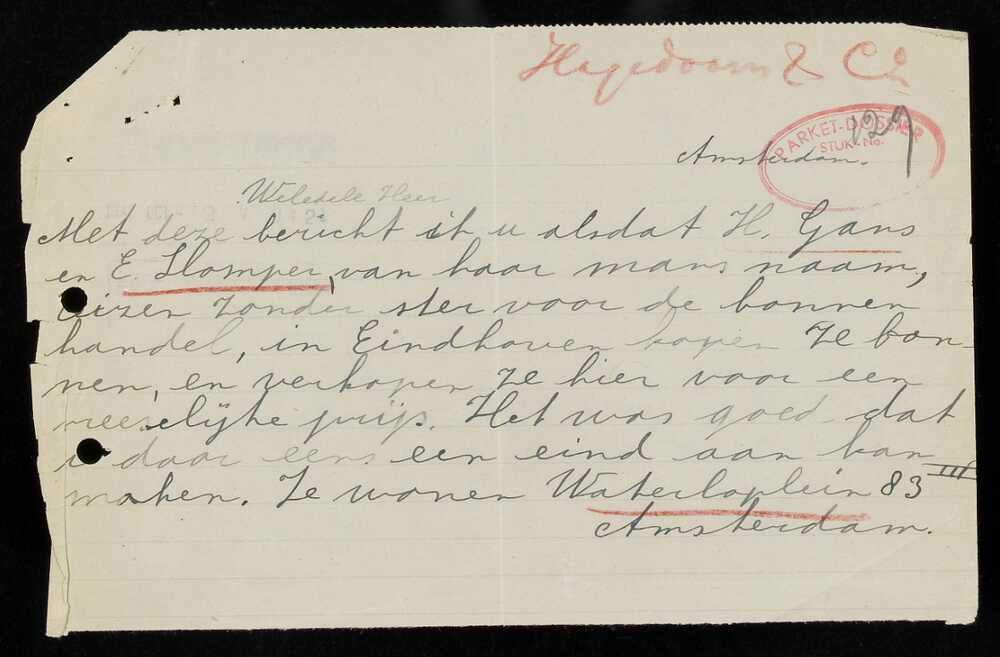 Hagedoorn & Co
PARKET-DOSSIER
STUK No.
127
Amsterdam.
Weledele Heer
Met deze bericht ik u alsdat H. Gans
en E. Slomper, van haar mans naam,
reizen zonder ster voor de bonnen
handel, in Eindhoven kopen ze bon-
nen, en verkopen ze hier voor een
vreeselijke prijs. Het was goed dat
u daar eens een eind aan kan
maken. Ze wonen Waterloplein 83 III
Amsterdam.